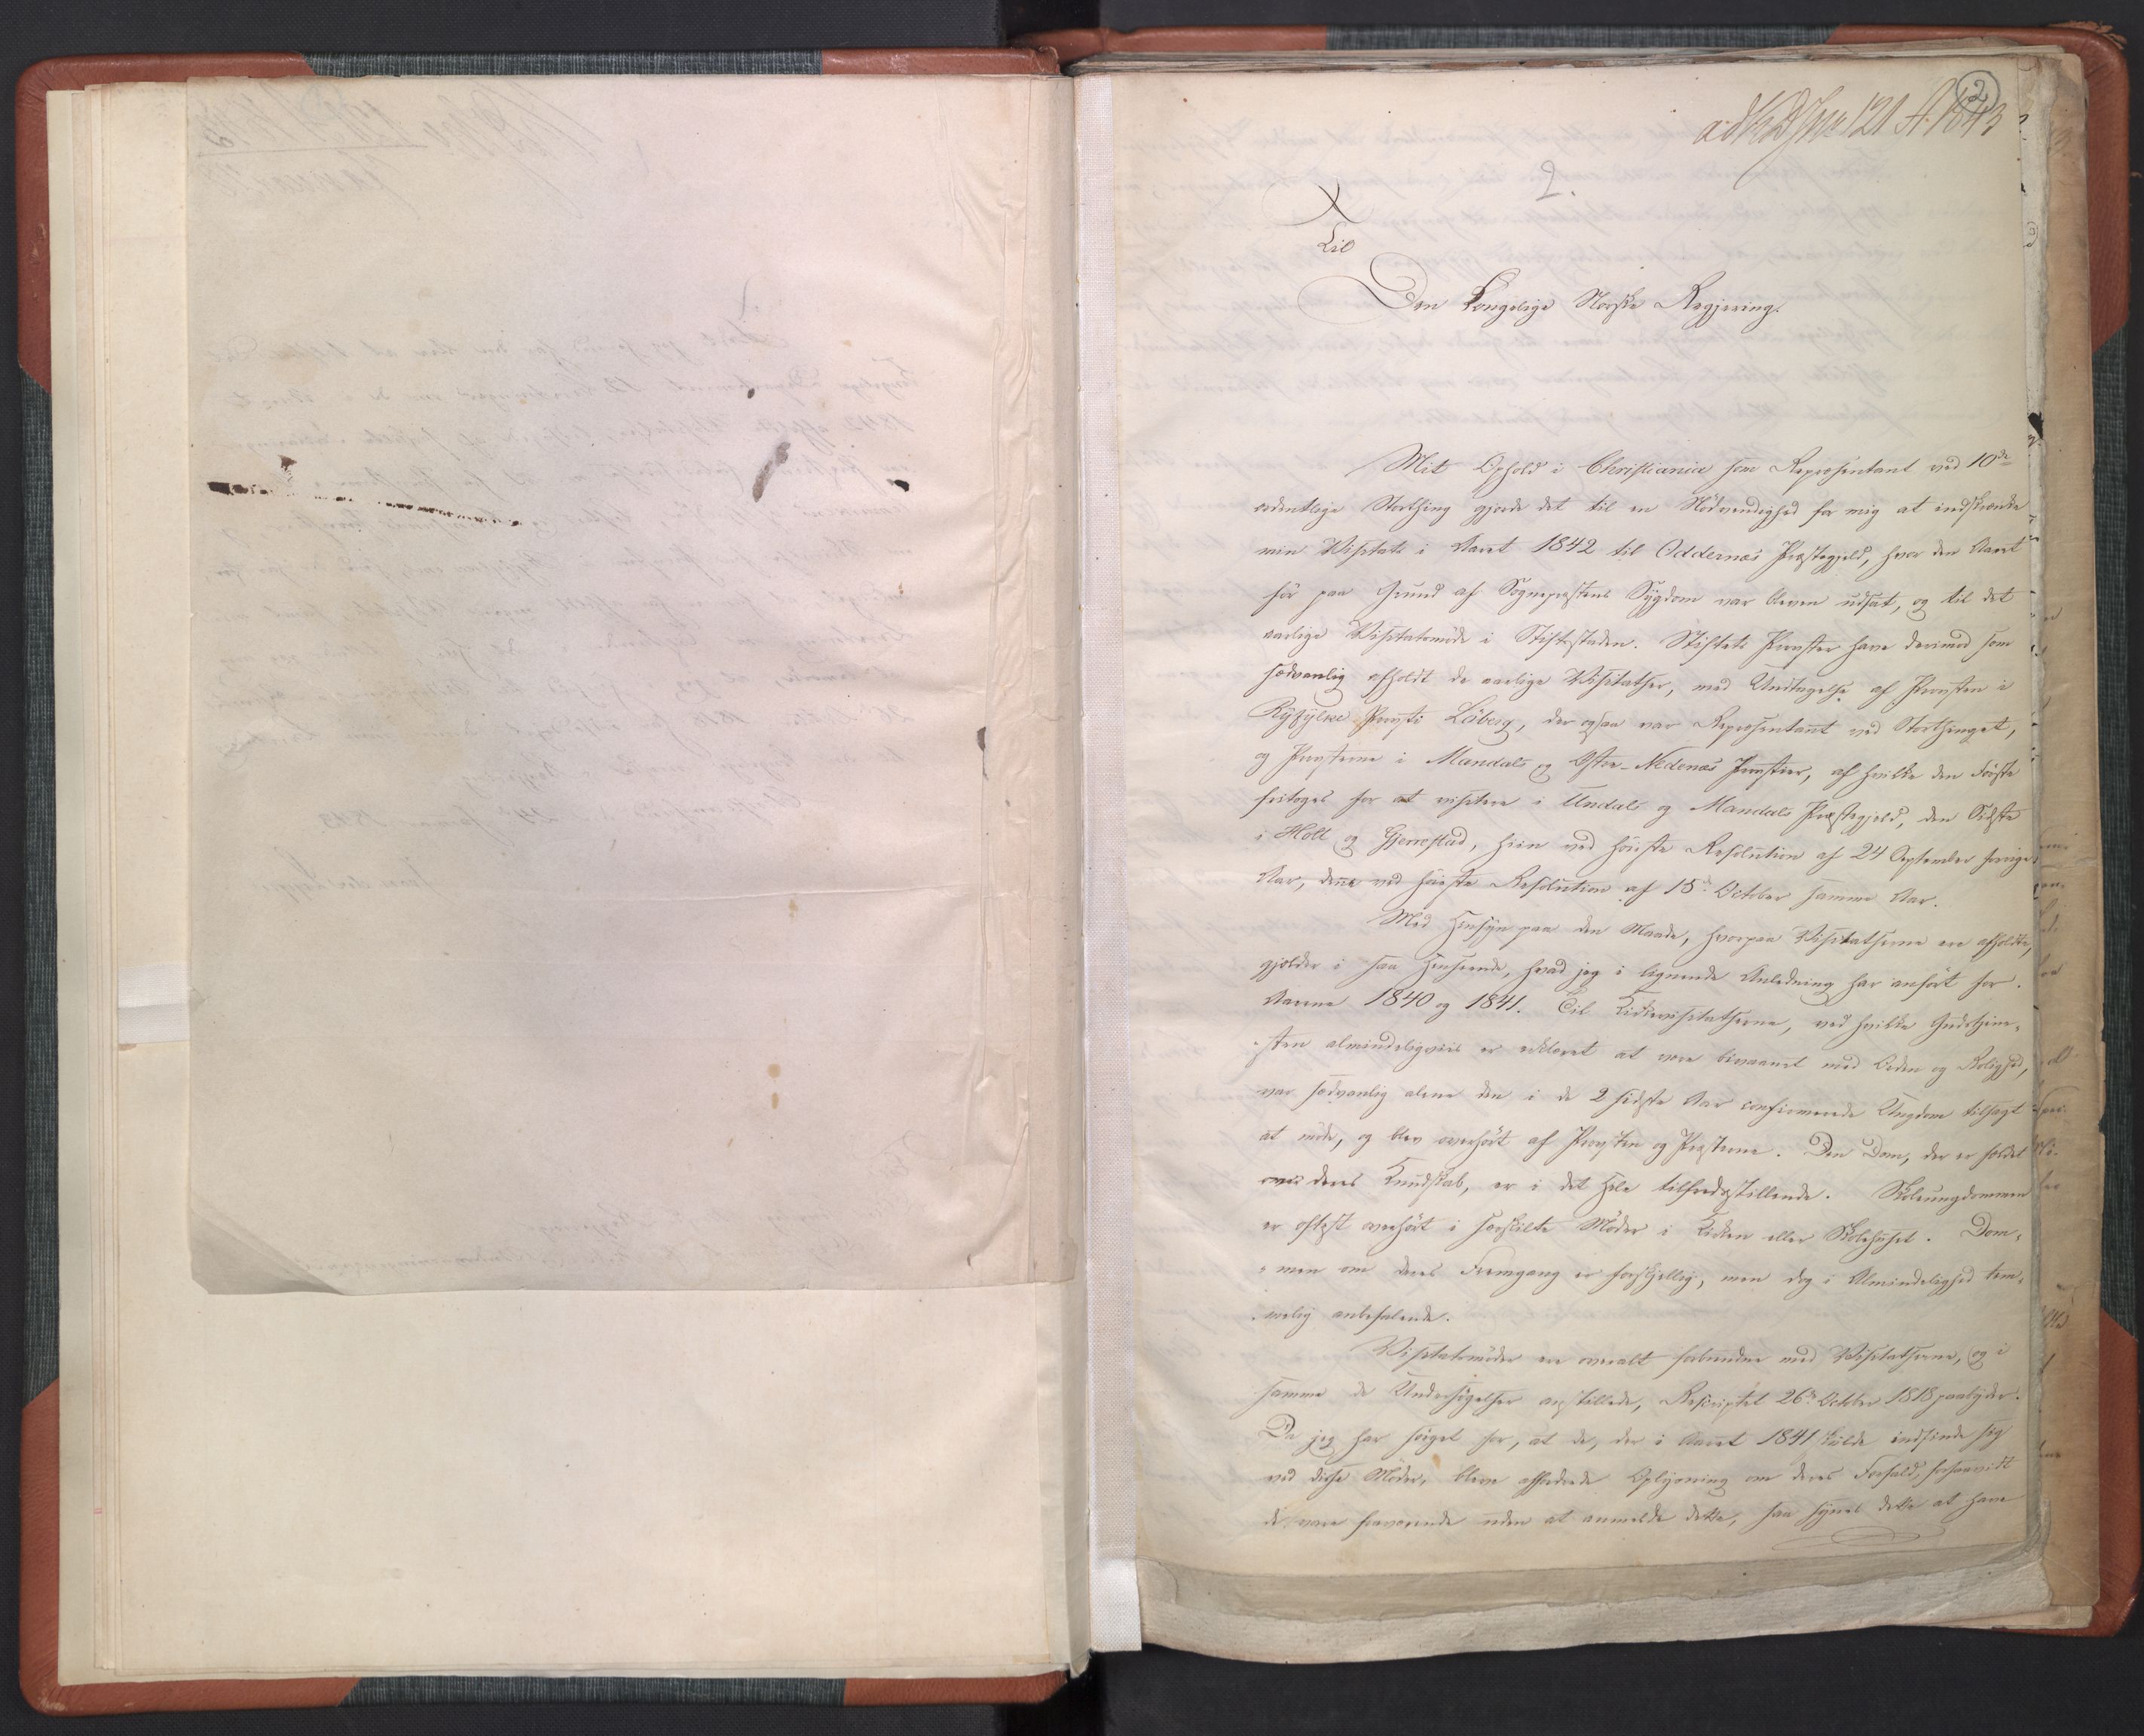 2
ad KD Jno 121 A. 1843
2.
Til
Den Kongelige Norske Regjering.
Mit Ophold i Christiania som Repræsentant ved 10de
ordentlige Storthing gjorde det til en Nödvendighed for mig at indskrænke
min Visitats i Aaret 1842 til Oddernæs Præstegjeld, hvor den Aaret
för paa Grund af Sognepræstens Sygdom var bleven udsat, og til det
aarlige Visitatsmöde i Stiftsstaden. Stiftets Provster have derimod som
sædvanlig afholdt de aarlige Visitatser, med Undtagelse af Provsten i
Ryfylke Provsti Löberg, der ogsaa var Repræsentant ved Storthinget,
og Provsterne i Mandals og Östre-Nedenæs Provstier, af hvilke den Förste
fritoges for at visitere i Undals og Mandals Præstegjeld, den Sidste
i Holt og Gjerrestad, hiin ved höieste Resolution af 24 September forrige
Aar, denne ved höieste Resolution af 15de October samme Aar.
Med Hensyn paa den Maade, hvorpaa Visitatserne ere afholdte,
gjælder i saa Henseende, hvad jeg i lignende Anledning har anfört for
Aarene 1840 og 1841. Til Kirkevisitatserne, ved hvilke Gudstjene-
sten almindeligviis er erklæret at være bivaanet med Orden og Rolighed,
var sædvanlig alene den i de 2 sidste Aar confirmerede Ungdom tilsagt
at möde, og blev overhört af Provsten og Præsterne. Den Dom, der er fældet
over deres Kundskab, er i det Hele tilfredsstillende. Skoleungdommen
er oftest overhört i særskilte Möder i Kirken eller Skolehuset. Dom-
men om deres Fremgang er forskjellig, men dog i Almindelighed tem-
melig anbefalende.
Visitatsmöder ere overalt forbundne med Visitatserne, og i
samme de Undersögelser anstillede, Rescriptet 26de October 1818 paabyder.
Da jeg har sörget for, at de, der i Aaret 1841 skulde indfinde sig
ved disse Möder, bleve affordrede Oplysning om deres Forfald, forsaavidt
de vare fraværende uden at anmelde dette, saa synes dette at have